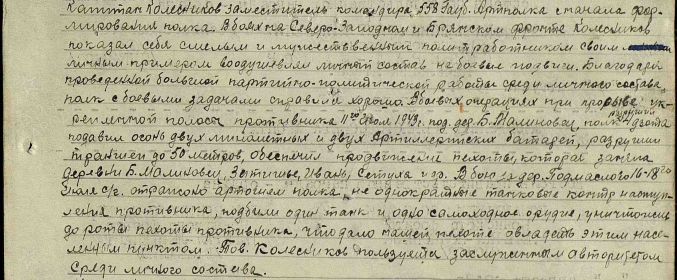 Капитан Колесников заместитель командира 558 Гауб. Артполка с начала фор-
мирования полка. В боях на Северо-Западном и Брянском фронте Колесников
показал себя смелым и мужественным политработником своим
личным примером воодушевлял личный состав на боевые подвиги. Благодаря
проведенной большой партийно-политической работы среди личного состава,
полк с боевыми задачами справился хорошо. В боевых операциях при прорыве ук-
репленной полосы противника 11го июля 1943г. под дер. Б. Малиновец, полк разрушил 4 дзота
подавил огонь двух минометных и двух артиллерийских батарей, разрушил
траншеи до 50 метров, обеспечил продвижение пехоты, которая заняла
деревни Б. Малиновец, Затишье, Ивань, Сетуха и др. В бою за дер. Подмаслого 16-18го
июля с/г. отражено артогнем полка, неоднократные танковые контр наступ-
ления противника, подбили один танк и одно самоходное орудие, уничтожили
до роты пехоты противника, что дало нашей пехоте овладеть этим насе-
ленным пунктом. Тов. Колесников пользуется заслуженным авторитетом
среди личного состава.